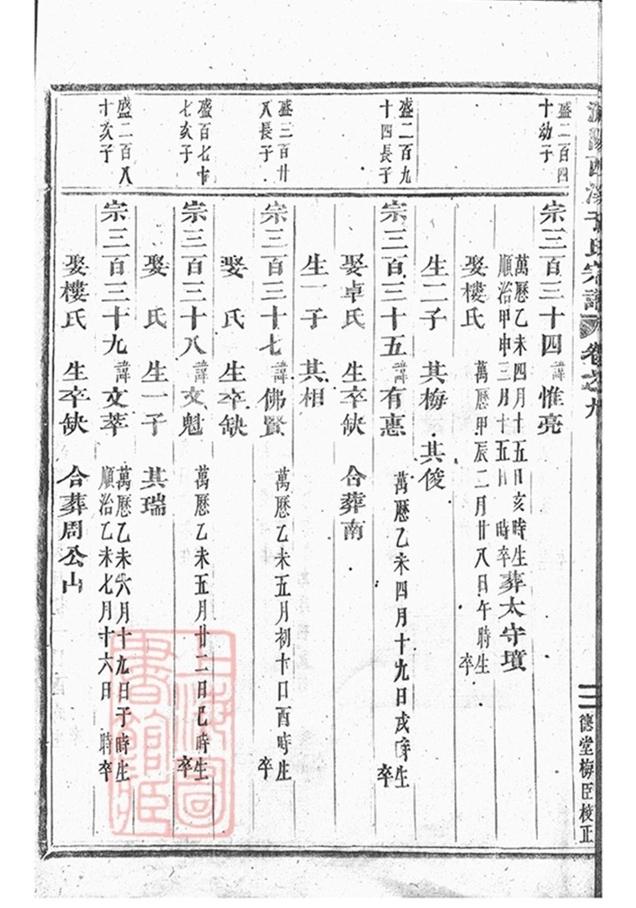 盛二百四
十幼子
宗三百三十四 諱惟亮
萬曆乙未四月十五日亥時生
順治甲申三月十五日 時卒
葬太守墳
娶樓氏 萬曆甲辰二月廿八日午時生
卒
生二子 其梅 其俊
盛二百九
十四長子
宗三百三十五 諱有惠
萬曆乙未四月十九日戌時生
卒
娶卓氏 生卒缺 合葬南
生一子 其相
盛三百廿
八長子
宗三百三十七 諱佛賢
萬曆乙未五月初十日酉時生
卒
娶 氏 生卒缺
盛百七十
七次子
宗三百三十八 諱文魁
萬曆乙未五月廿二日巳時生
卒
娶 氏 生一子 其瑞
盛二百八
十次子
宗三百三十九 諱文萃
萬曆乙未六月十九日子時生
順治乙未七月十六日 時卒
娶樓氏 生卒缺 合葬周公山
氏宗譜 卷之九
德堂梅臣校正
上海圖
書館藏